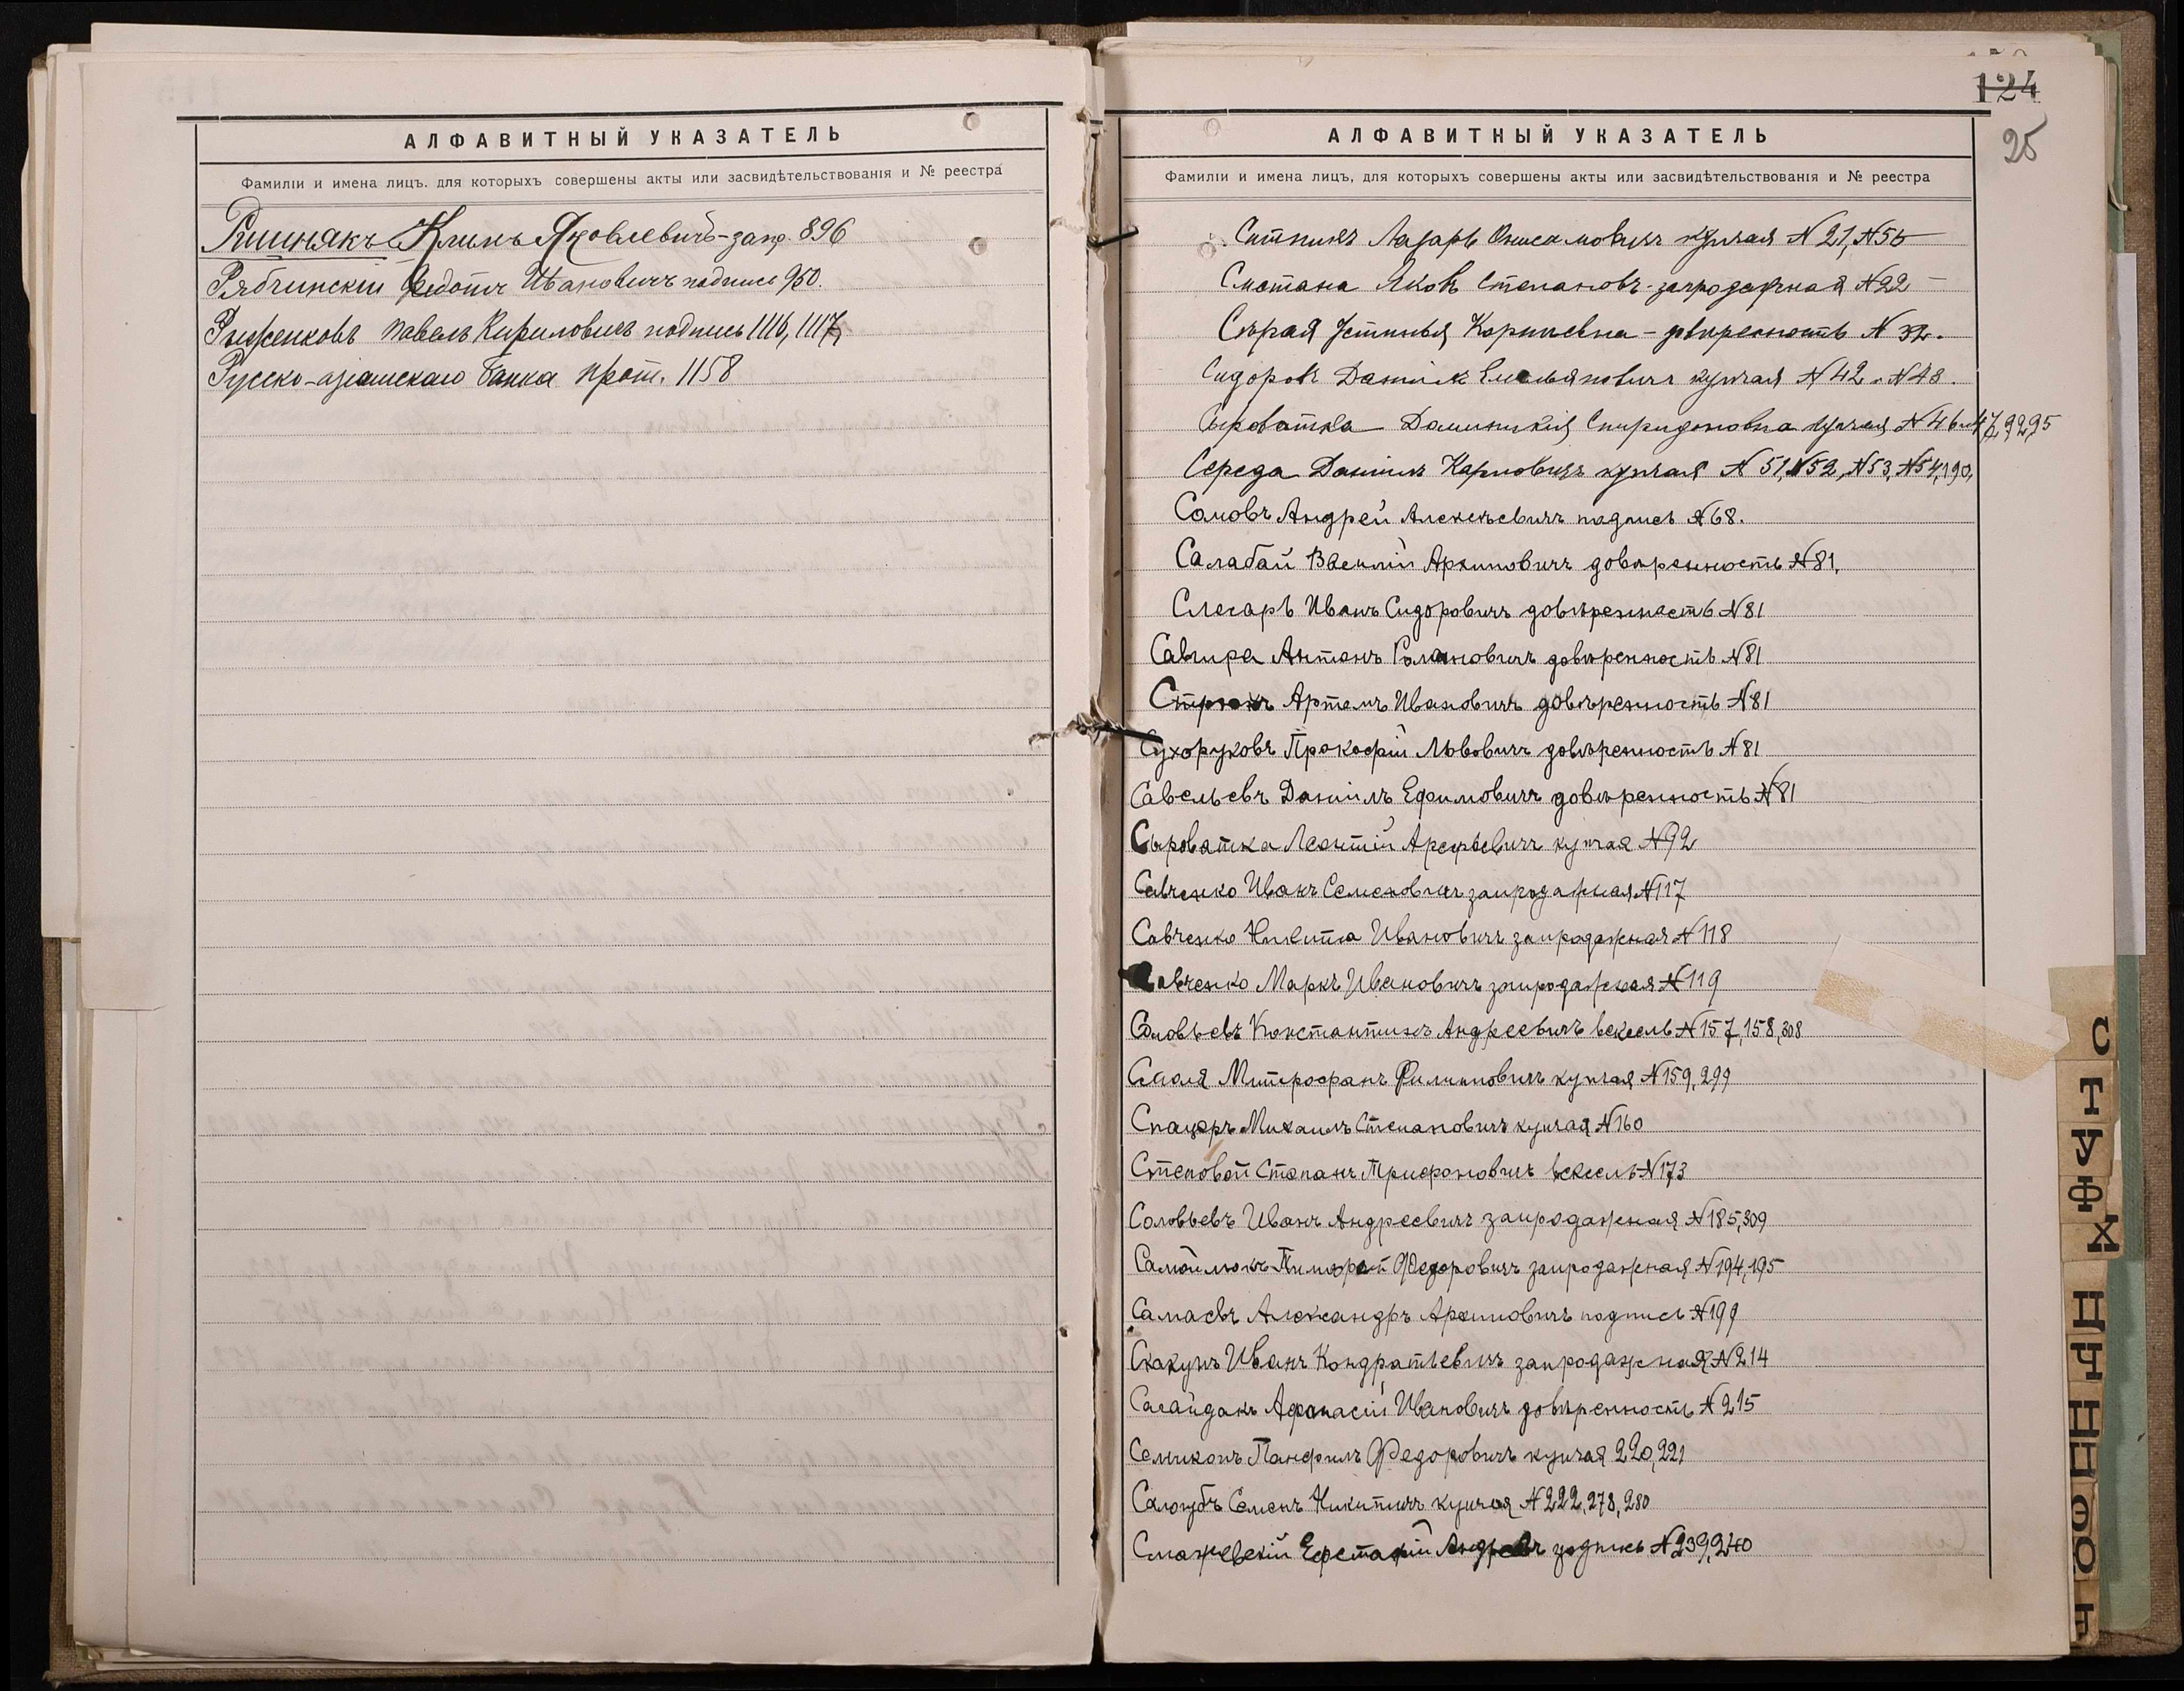 АЛФАВИТНЫЙ УКАЗАТЕЛЬ
Фамиліи и имена лицъ, для которыхъ совершены акты или засвидѣтельствованія и № реестра
Яковлевичъ - запр. 896
Рябчинскій Федотъ Ивановичъ подпись 950.
Рыженковъ Павелъ Кириловичъ подпись 1116, 1117,
Русско-азіатскаго банка прот. 1158
124
25
АЛФАВИТНЫЙ УКАЗАТЕЛЬ
Фамиліи и имена лицъ, для которыхъ совершены акты или засвидѣтельствованія и № реестра
Ситникъ Лазарь Онисимовичъ купчая №21, №55
Сметана Яковъ Степановъ - запродажная №22 -
Сѣрая Устинья Карпиевна - довѣренность № 32.
Сидоровъ Даніилъ Емельяновичъ купчая №42 и №48.
Сыроватка Домникія Спиридоновна купчая №46 и 47, 92, 95
Середа Даніилъ Карповичъ купчая №51, №52, №53, №54, 190,
Сомовъ Андрей Алексѣевичъ подпись №68.
Салабай Василій Архиповичъ довѣренность №81,
Слесарь Иванъ Сидоровичъ довѣренность №81
Савира Антонъ Романовичъ довѣренность №81
Артемъ Ивановичъ довѣренность №81
Сухоруковъ Прокофій Львовичъ довѣренность №81
Савельевъ Даніилъ Ефимовичъ довѣренность №81
Сыроватка Леонтій Арефьевичъ купчая №92
Савченко Иванъ Семеновичъ запродажная №117
Савченко Никита Ивановичъ запродажная №118
Савченко Маркъ Ивановичъ запродажная №119
Соловьевъ Константинъ Андреевичъ вексель №157, 158, 308
Смоля Митрофанъ Филипповичъ купчая №159, 299
Михаилъ Степановичъ купчая №160
Степовой Степанъ Трифоновичъ вексель №173
Соловьевъ Иванъ Андреевичъ запродажная №185, 309
Самойлюкъ Тимофей Федоровичъ запродажная №194, 195
Самаевъ Александръ Архиповичъ подпись №199
Скакунъ Иванъ Кондратьевичъ запродажная №214
Сагайдакъ Афанасій Ивановичъ довѣренность №215
Семиконъ Панфилъ Федоровичъ купчая 220, 221
Сологубъ Семенъ Никитичъ купчая №222, 278, 280
Смажевскій Евстафій подпись №239, 240
С
Т
У
Ф
Х
Ц
Ч
Э
Ю